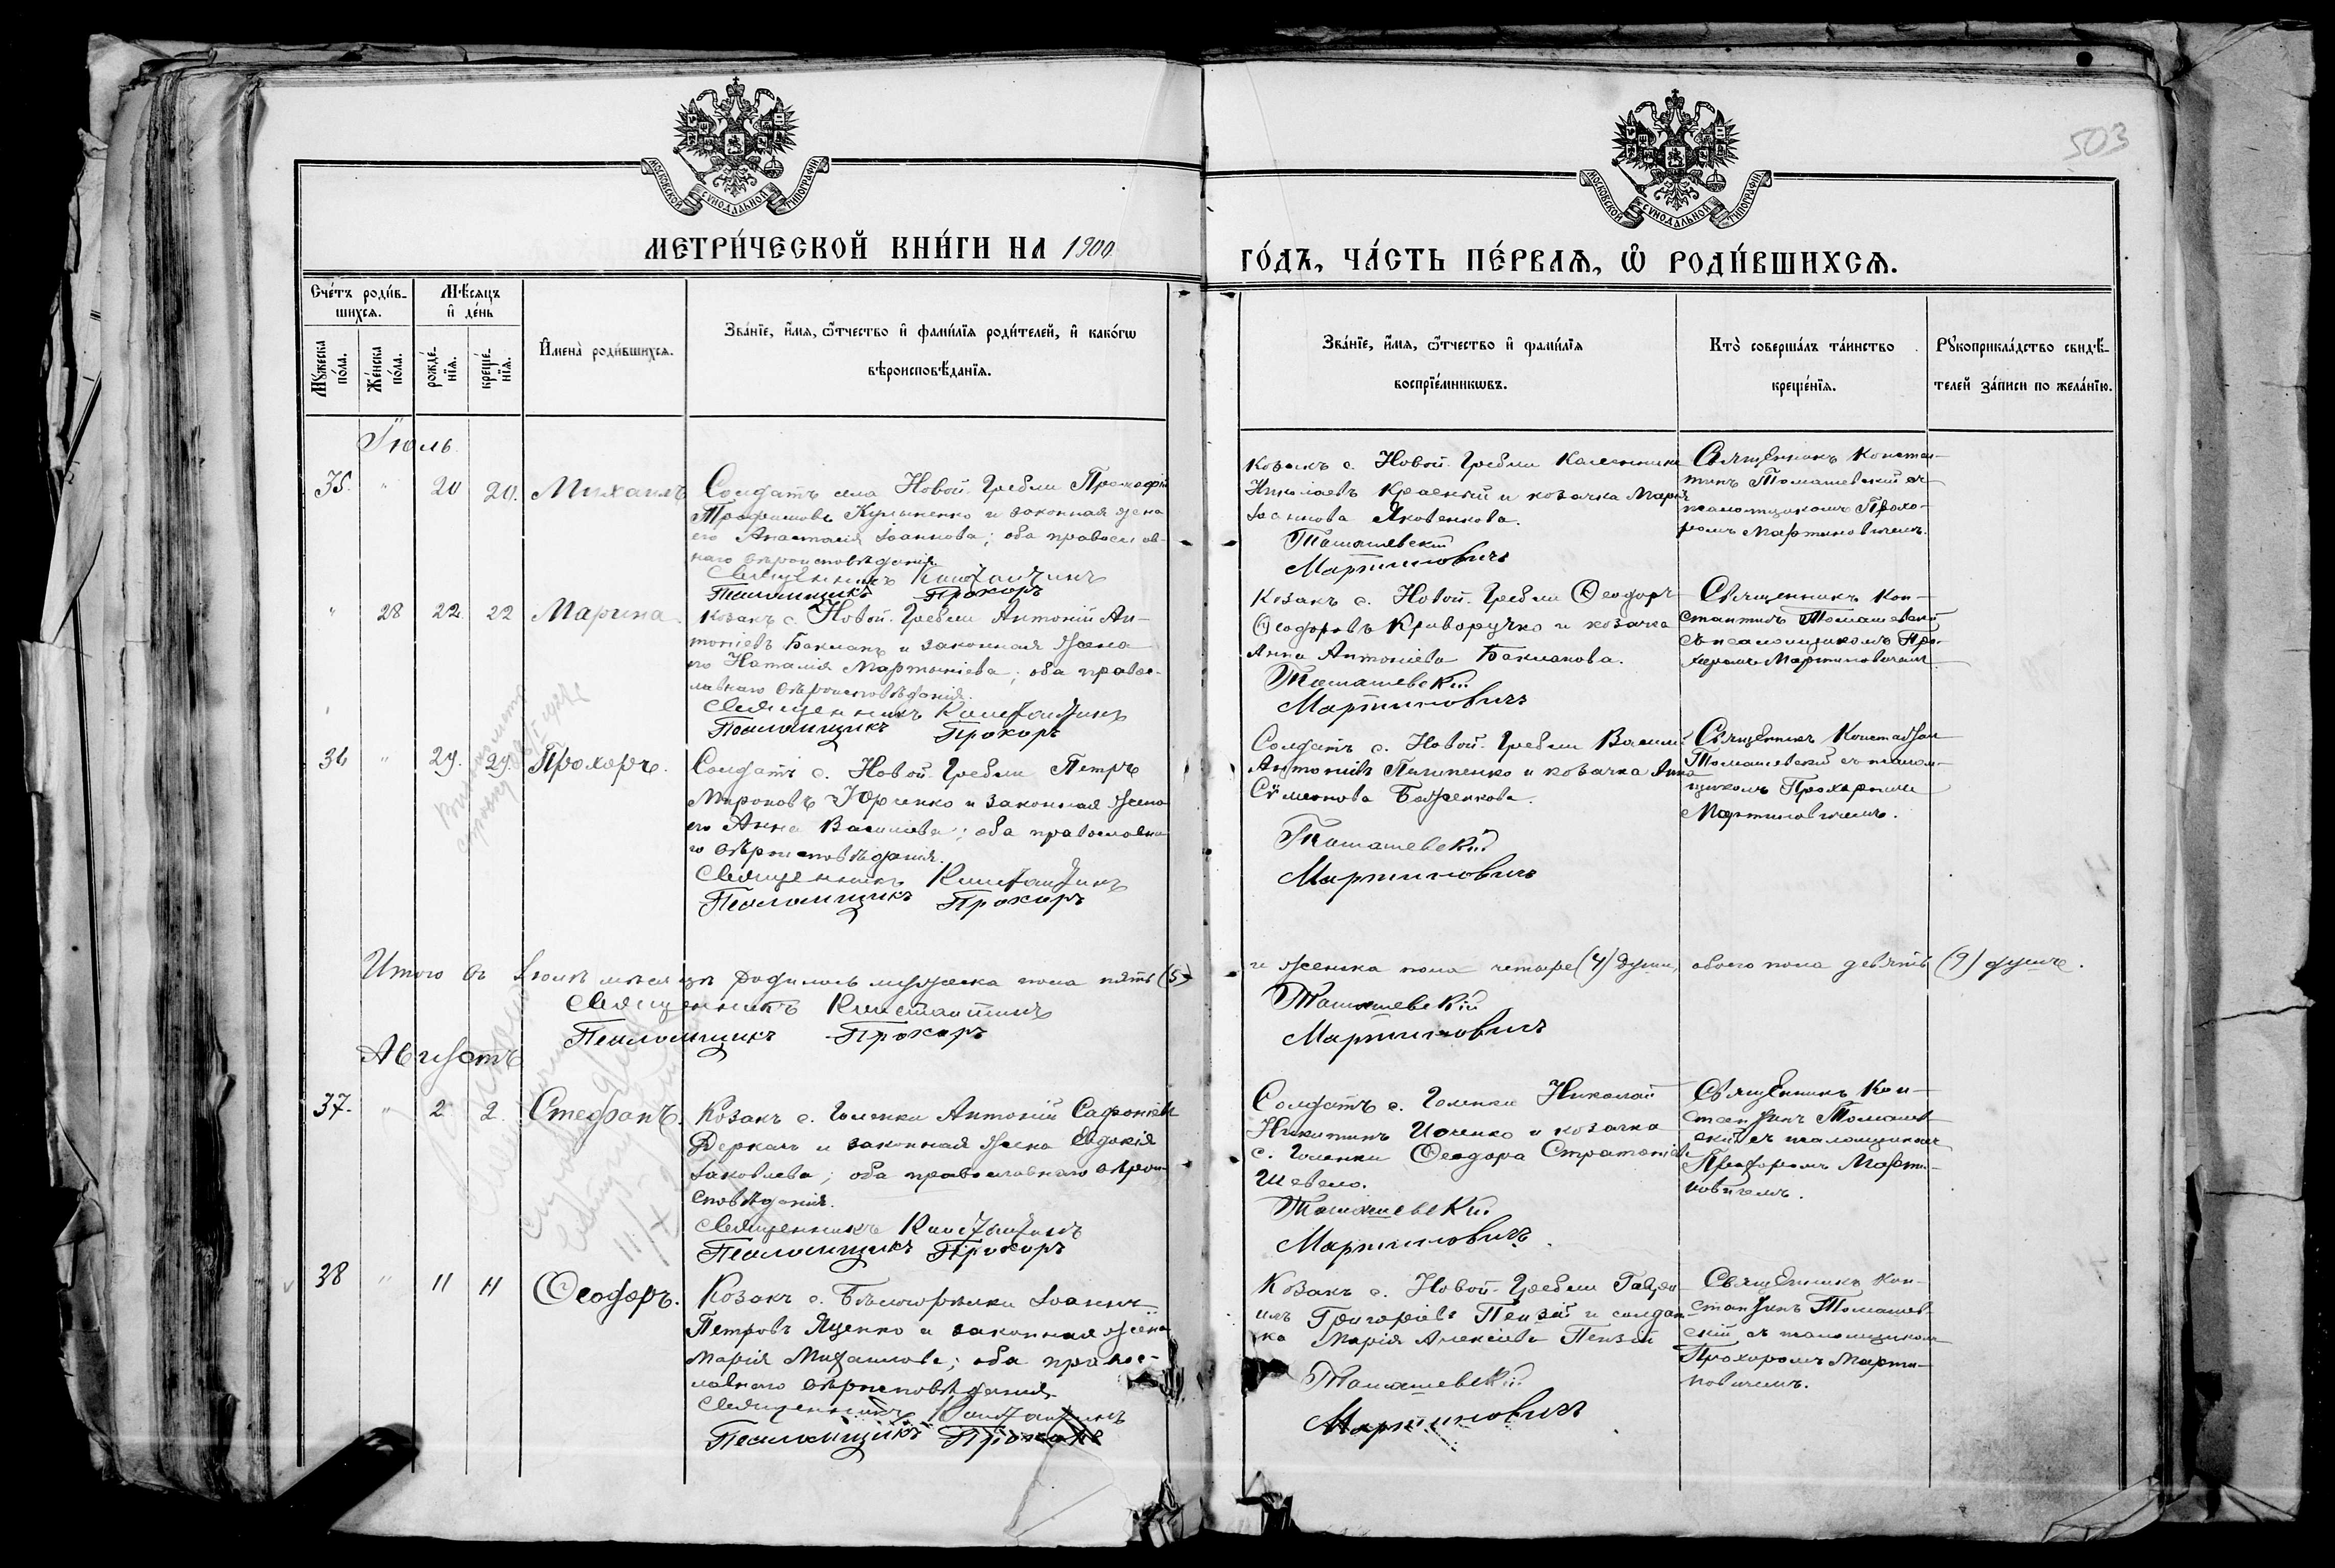 503
МОСКОВСКОЙ СѴНОДАЛЬНОЙ ТИПОГРАФІИ
МОСКОВСКОЙ СѴНОДАЛЬНОЙ ТИПОГРАФІИ
МЕТРИ́ЧЕСКОЙ КНИ́ГИ НА 1900
ГО́ДЪ, ЧА́СТЬ ПЕ́РВАѦ, Ѡ҆ РОДИ́ВШИХСѦ.
Сче́тъ роди́в-
шихсѧ.
Мꙋ́жеска по́ла.
Же́нска по́ла.
Мѣ́сѧцъ и҆ де́нь
рожде́-нїѧ.
креще́-нїѧ.
И҆мена̀ роди́вшихсѧ.
Зва́нїе, и҆́мѧ, ѻ҆́тчество и҆ фами́лїѧ роди́телей, и҆ како́гѡ
вѣроисповѣ́данїѧ.
Зва́нїе, и҆́мѧ, ѻ҆́тчество и҆ фами́лїѧ
воспрїе́мникѡвъ.
Кто̀ соверша́лъ та́инство
креще́нїѧ.
Рꙋкоприкла́дство свидѣ́-
телей за́писи по жела́нїю.
Іюль
35. " 20 20. Михаилъ
Солдатъ села Новой-Гребли Прокофій
Трофимовъ Кулыненко и законная жена
его Анастасія Іоаннова; оба православ-
наго вѣроисповѣданія.
Священникъ Константинъ
Псаломщикъ Прохоръ
Козакъ с. Новой-Гребли Каленникъ
Николаевъ и козачка Марія
Іоаннова Яковенкова.
Томашевскій
Мартиновичъ
Священникъ Констан-
тинъ Томашевскій съ
псаломщикомъ Прохо-
ромъ Мартиновичемъ.
" 28 22 22 Марина.
Козакъ с. Новой-Гребли Антоній Ан-
тоніевъ Бакланъ и законная жена
его Наталія Мартыніева; оба правос-
лавнаго вѣроисповѣданія.
Священникъ Константинъ
Псаломщикъ Прохоръ
Козакъ с. Новой-Гребли Ѳеодоръ
Ѳеодоровъ Криворучко и козачка
Анна Антоніева Бакланова.
Томашевскій
Мартиновичъ
Священникъ Кон-
стантинъ Томашевскій
съ псаломщикомъ Про-
хоромъ Мартиновичемъ.
36 " 29. 29. Прохоръ.
Солдатъ с. Новой-Гребли Петръ
Мироновъ Юрченко и законная жена
его Анна Васильева; оба православна-
го вѣроисповѣданія.
Священникъ Константинъ
Псаломщикъ Прохоръ
Солдатъ с. Новой-Гребли Василій
Антоніевъ Пилипенко и козачка Анна
Сѵмеонова Баженкова.
Томашевскій
Мартиновичъ
Священникъ Константин
Томашевскій съ псалом-
щикомъ Прохоромъ
Мартиновичемъ.
Итого въ Іюлѣ мѣсяцѣ родилось мужеска пола пять (5)
и женска пола четыре (4) души, обоего пола девять (9) душъ.
Священникъ Константинъ
Томашевскій
Псаломщикъ Прохоръ
Мартиновичъ
Августъ
37. " 2 2. Стефанъ.
Козакъ с. Голенки Антоній Сафоніевъ
Деркачъ и законная жена Евдокія
Іаковлева; оба православнаго вѣрои-
сповѣданія.
Священникъ Константинъ
Псаломщикъ Прохоръ
Солдатъ с. Голенки Николай
Никитинъ Ищенко и козачка
с. Голенки Ѳеодора Стратоніева
Шевело.
Томашевскій
Мартиновичъ.
Священникъ Кон-
стантинъ Томашев-
скій съ псаломщикомъ
Прохоромъ Марти-
новичемъ.
38 " 11 11 Ѳеодоръ.
Козакъ с. Бѣлогорѣлки Іоаннъ
Петровъ Яценко и законная жена
Марія Михаилова; оба правос-
лавнаго вѣроисповѣданія.
Священникъ Константинъ
Псаломщикъ Прохоръ
Козакъ с. Новой-Гребли Гаврі-
илъ Григоріевъ Пензій и солдат-
ка Марія Алексіева Пензій
Томашевскій
Мартиновичъ
Священникъ Кон-
стантинъ Томашев-
скій съ псаломщикомъ
Прохоромъ Марти-
новичемъ.